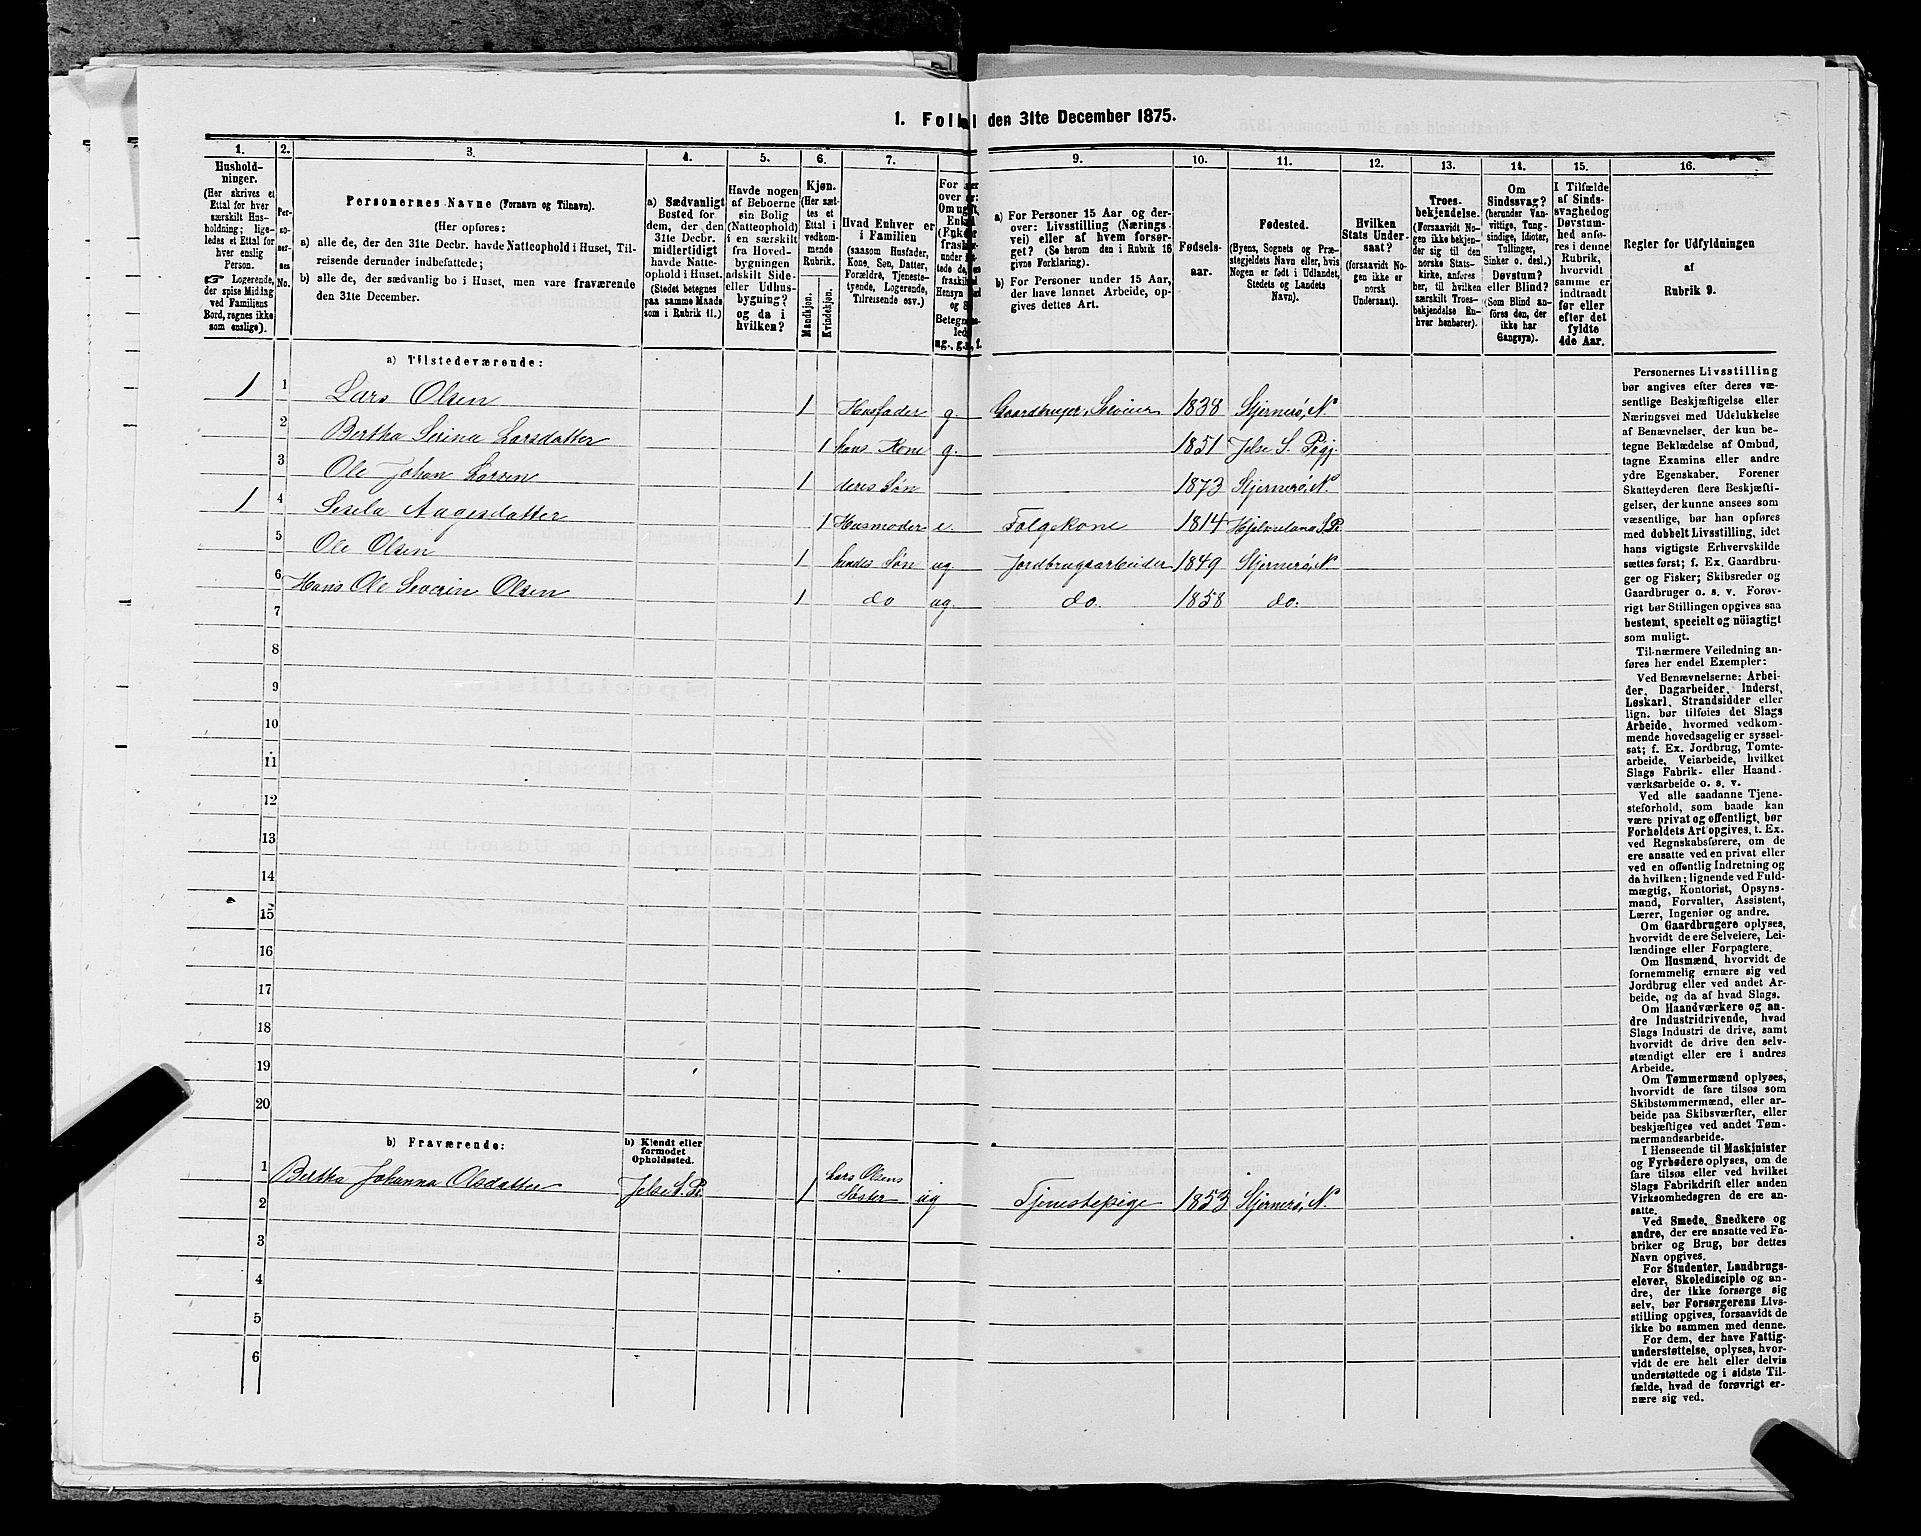 1. Folk den 31te December 1875.
1. 2. 3. 4. 5. 6. 7. 9. 10. 11. 12. 13. 14. 15. 16.
Hushold-
ninger.
(Her skrives et
Ettal for hver
særskilt Hus-
holdning; lige-
ledes et Ettal for
hver enslig
Person.
☞ Logerende,
der spise Middag
ved Familiens
Bord, regnes ikke
som enslige).
Per-
so-
ner-
nes
No.
Personernes Navne (Fornavn og Tilnavn).
(Her opføres:
a) alle de, der den 31te Decbr. havde Natteophold i Huset, Til-
reisende derunder indbefattede;
b) alle de, der sædvanlig bo i Huset, men vare fraværende
den 31te December.
a) Sædvanligt
Bosted for
dem, der den
31te Decbr.
midlertidigt
havde Natte-
ophold i Huset.
(Stedet betegnes
paa samme Maade
som i Rubrik 11.)
Havde nogen
af Beboerne
sin Bolig
(Natteophold)
i en særskilt
fra Hoved-
bygningen
adskilt Side-
eller Udhus-
bygning?
og da i
hvilken?
Kjøn.
(Her sæt-
tes et
Ettal i
vedkom-
mende
Rubrik.
Mandkjøn.
Kvindekjøn.
Hvad Enhver er
i Familien
(saasom Husfader,
Kone, Søn, Datter,
Forældre, Tjeneste-
tyende, Logerende,
Tilreisende osv.)
a) For Personer 15 Aar og der-
over: Livsstilling (Nærings-
vei) eller af hvem forsør-
get? (Se herom den i Rubrik 16
givne Forklaring).
b) For Personer under 15 Aar,
der have lønnet Arbeide, op-
gives dettes Art.
Fødsels-
aar.
Fødested.
(Byens, Sognets og Præ-
stegjeldets Navn eller, hvis
Nogen er født i Udlandet,
Stedets og Landets
Navn).
Hvilken
Stats Under-
saat?
(forsaavidt No-
gen ikke er
norsk
Undersaat).
Troes-
bekjendelse.
(Forsaavidt No-
gen ikke bekjen-
der sig til den
norske Stats-
kirke, anføres
her, til hvilken
særskilt Troes-
bekjendelse En-
hver henhører).
Om
Sindssvag?
(herunder Van-
vittige, Tung-
sindige, Idioter,
Tullinger,
Sinker o. desl.)
Døvstum?
eller Blind?
(Som Blind an-
føres den, der
ikke har
Gangsyn).
I Tilfælde
af Sinds-
svaghed og
Døvstum-
hed anfø-
res i denne
Rubrik,
hvorvidt
samme er
indtraadt
før eller
efter det
fyldte
4de Aar.
Regler for Udfyldningen
af
Rubrik 9.
a) Tilstedeværende:
1 1 Lars Olsen 1 Husfader g. Gaardbruger, Selveier 1838 Stjernerö, N
2 Bertha Serina Larsdatter 1 hans Kone g. 1851 Jelse S. Prgj.
3 Ole Johan Larsen 1 deres Søn 1873 Stjernerö, N.
1 4 Sesela Aagesdatter 1 Husmoder e. Folgekone 1814 Hjelmeland S. Pr
5 Ole Olsen 1 hendes Søn ug. Jordbrugsarbeider 1849 Stjernerö, N
6 Hans Ole Severin Olsen 1 do ug. do. 1858 do.
7
8
9
10
11
12
13
14
15
16
17
18
19
20
b) Fraværende:
b) Kjendt eller
formodet
Opholdssted.
1 Bertha Johanna Olsdatter Jelse S. Pr. 1 Lars Olsens Søster ug Tjenestepige 1853 Stjernerö, N.
2
3
4
5
6
Personernes Livsstilling
bør angives efter deres væ-
sentlige Beskjæftigelse eller
Næringsvei med Udelukkelse
af Benævnelser, der kun be-
tegne Beklædelse af Ombud,
tagne Examina eller andre
ydre Egenskaber. Forener
Skatteyderen flere Beskjæfti-
gelser, der kunne ansees som
væsentlige, bør han opføres
med dobbelt Livsstilling, idet
hans vigtigste Erhvervskilde
sættes først; f. Ex. Gaardbru-
ger og Fisker; Skibsreder og
Gaardbruger o. s. v. Forøv-
rigt bør Stillingen opgives saa
bestemt, specielt og nöiagtigt
som muligt.
Til nærmere Veiledning an-
føres her endel Exempler:
Ved Benævnelserne: Arbei-
der, Dagarbeider, Inderst,
Løskarl, Strandsidder eller
lign. bør tilføies det Slags
Arbeide, hvormed vedkom-
mende hovedsagelig er syssel-
sat; f. Ex. Jordbrug, Tomte-
arbeide, Veiarbeide, hvilket
Slags Fabrik- eller Haand-
værksarbeide o. s. v.
Ved alle saadanne Tjene-
steforhold, som baade kan
være privat og offentligt, bør
Forholdets Art opgives, t. Ex.
ved Regnskabsførere, om de
ere ansatte ved en privat eller
ved en offentlig Indretning og
da hvilken; lignende ved Fuld-
mægtig, Kontorist, Opsyns-
mand, Forvalter, Assistent,
Lærer, Ingeniør og andre.
Om Gaardbrugere oplyses,
hvorvidt de ere Selveiere, Lei-
lændinge eller Forpagtere.
Om Husmænd, hvorvidt de
fornemmelig ernære sig ved
Jordbrug eller ved andet Ar-
beide, og da af hvad Slags.
Om Haandværkere og an-
dre Industridrivende, hvad
Slags Industri de drive, samt
hvorvidt de drive den selv-
stændigt eller ere i andres
Arbeide.
Om Tømmermænd oplyses,
hvorvidt de fare tilsøs som
Skibstømmermænd, eller ar-
beide paa Skibsværfter, eller
beskjæftiges ved andet Tøm-
mermandsarbeide.
I Henseende til Maskinister
og Fyrbødere oplyses, om de
fare tilsøs eller ved hvilket
Slags Fabrikdrift eller anden
Virksomhedsgren de ere an-
satte.
Ved Smede, Snedkere og
andre, der ere ansatte ved Fa-
briker og Brug, bør dettes
Navn opgives.
For Studenter, Landbrugs-
elever, Skoledisciple og an-
dre, der ikke forsørge sig
selv, bør Forsørgerens Livs-
stilling opgives, forsaavidt de
ikke bo sammen med denne.
For dem, der have Fattig-
understøttelse, oplyses, hvor-
vidt de ere helt eller delvis
understøttede og i sidste Til-
fælde, hvad de forøvrigt er-
nære sig ved.